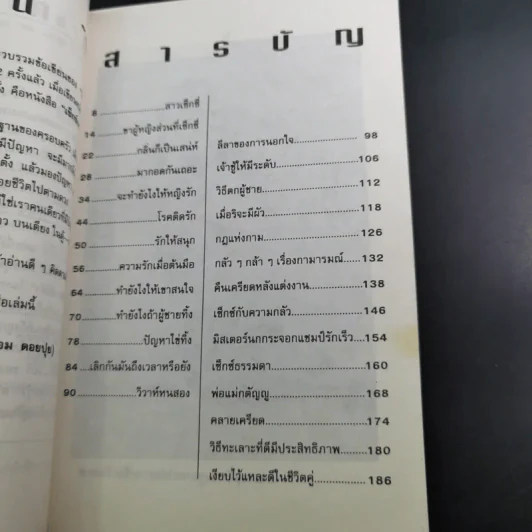 สารบัญ
8 สาวเซ็กซี่
14 ขาผู้หญิงส่วนที่เซ็กซี่
22 กลิ่นก็เป็นเสน่ห์
28 มากอดกันเถอะ
34 จะทำยังไงให้หญิงรัก
44 โรคติดรัก
50 รักให้สนุก
56 ความรักเมื่อต้นมือ
64 ทำยังไงให้เขาสนใจ
70 ทำยังไงถ้าผู้ชายทิ้ง
78 ปัญหาไข่ทิ้ง
84 เลิกกันมันถึงเวลาหรือยัง
90 วิวาห์หนสอง
ลีลาของการนอกใจ 98
เจ้าชู้ให้มีระดับ 106
วิธีตกผู้ชาย 112
เมื่อริจะมีผัว 118
กฎแห่งกาม 126
กลัว ๆ กล้า ๆ เรื่องกามารมณ์ 132
คืนเครียดหลังแต่งงาน 138
เซ็กซ์กับความกลัว 146
มิสเตอร์นกกระจอกแชมป์รักเร็ว 154
เซ็กซ์ธรรมดา 160
พ่อแม่กตัญญู 168
คลายเครียด 174
วิธีทะเลาะที่ดีมีประสิทธิภาพ 180
เงียบไว้แหละดีในชีวิตคู่ 186